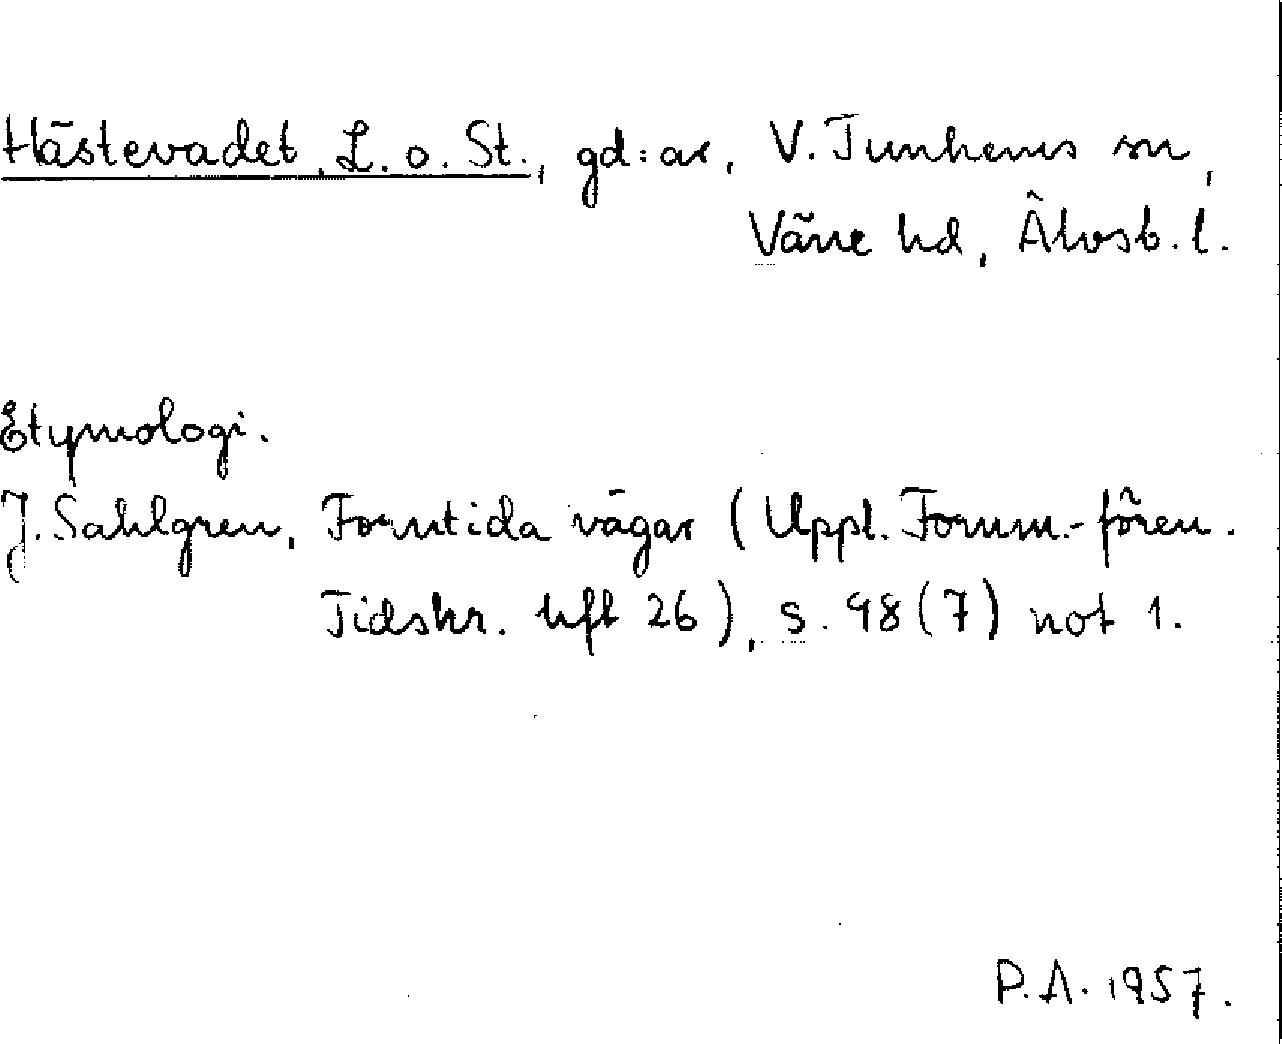 Hästevadet, L. o. St., gd:ar, V. Tunhems sn,
Väne hd, Älvsb. l.
Etymologi.
J. Sahlgren, Forntida vägar (Uppl. Fornm.-fören.
Tidskr. hft 26), s. 98(7) not 1.
P.A. 1957.